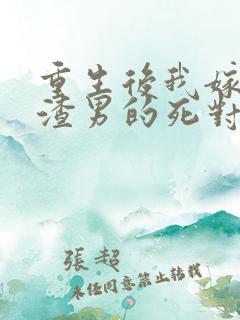 重生後我嫁
渣男的死對
張超
未經同意禁止轉載